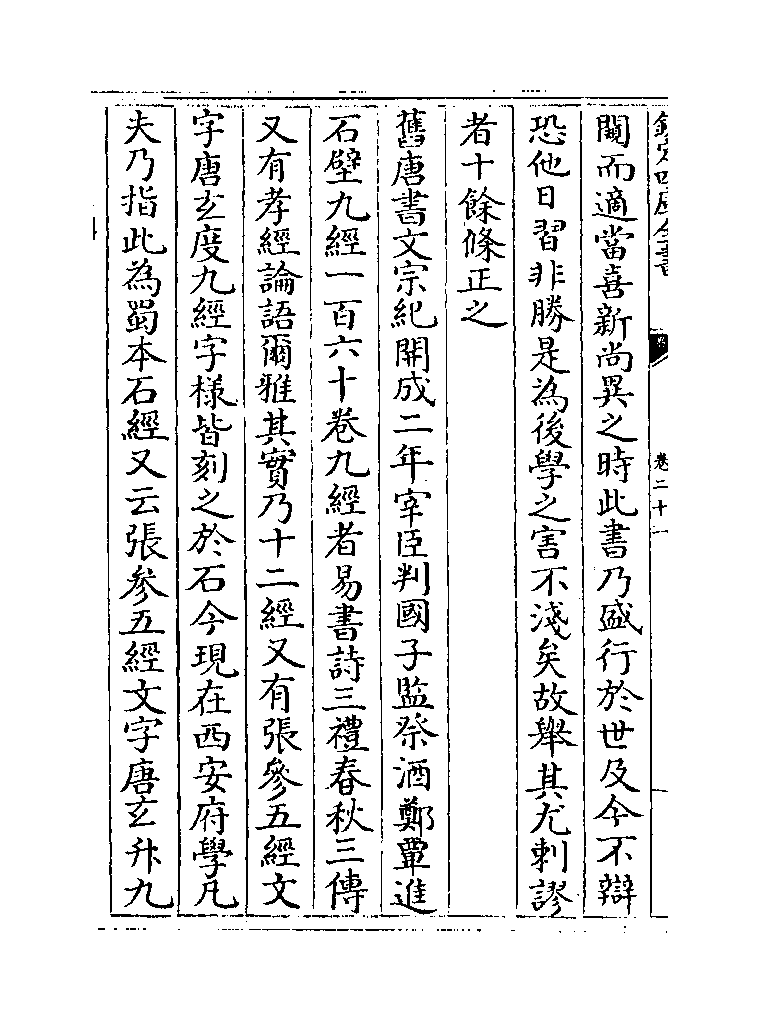 欽定四庫全書 卷二十一
闚而適當喜新尚異之時此書乃盛行於世及今不辯
恐他日習非勝是為後學之害不淺矣故舉其尤剌謬
者十餘條正之
舊唐書文宗紀開成二年宰臣判國子監祭酒鄭覃進
石壁九經一百六十卷九經者易書詩三禮春秋三傳
又有孝經論語爾雅其實乃十二經又有張參五經文
字唐玄度九經字様皆刻之於石今現在西安府學凡
夫乃指此為蜀本石經又云張參五經文字唐玄升九